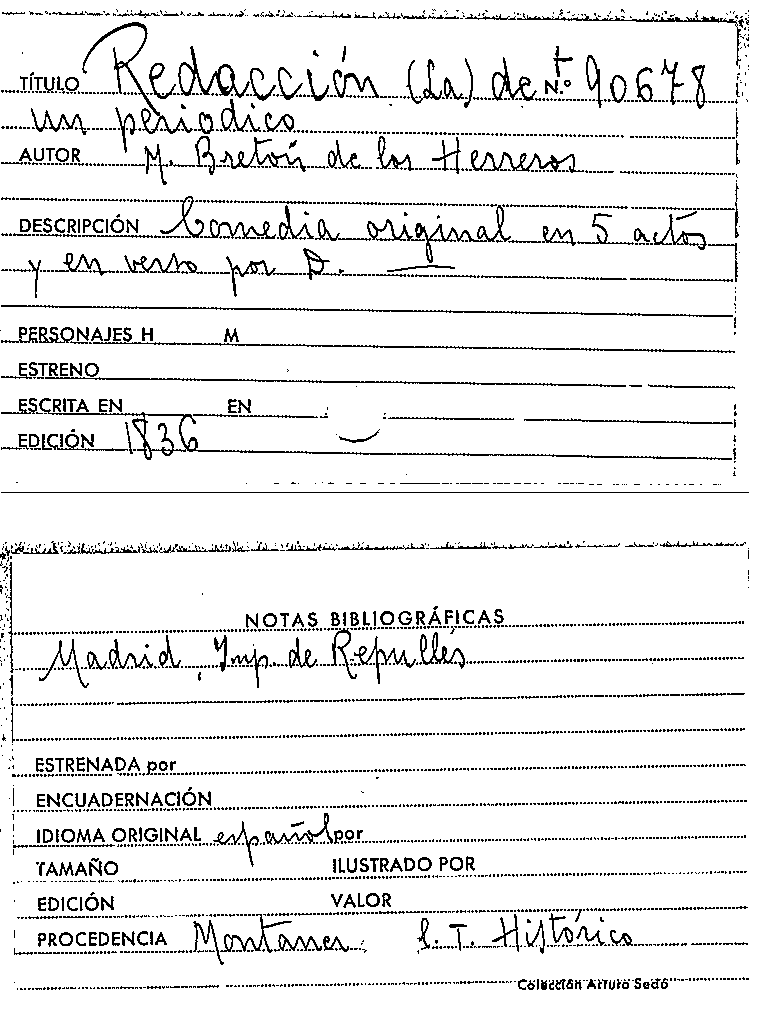 TÍTULO Redacción (La) de Nº 90678
un periodico
AUTOR M. Bretón de los Herreros
DESCRIPCIÓN Comedia original en 5 actos
y en verso por D. —
PERSONAJES H M
ESTRENO
ESCRITA EN EN
EDICIÓN 1836
NOTAS BIBLIOGRÁFICAS
Madrid, Imp. de Repullés
ESTRENADA por
ENCUADERNACIÓN
IDIOMA ORIGINAL español por
TAMAÑO ILUSTRADO POR
EDICIÓN VALOR
PROCEDENCIA Montaner T. Histórico
Colección Arturo Sedó